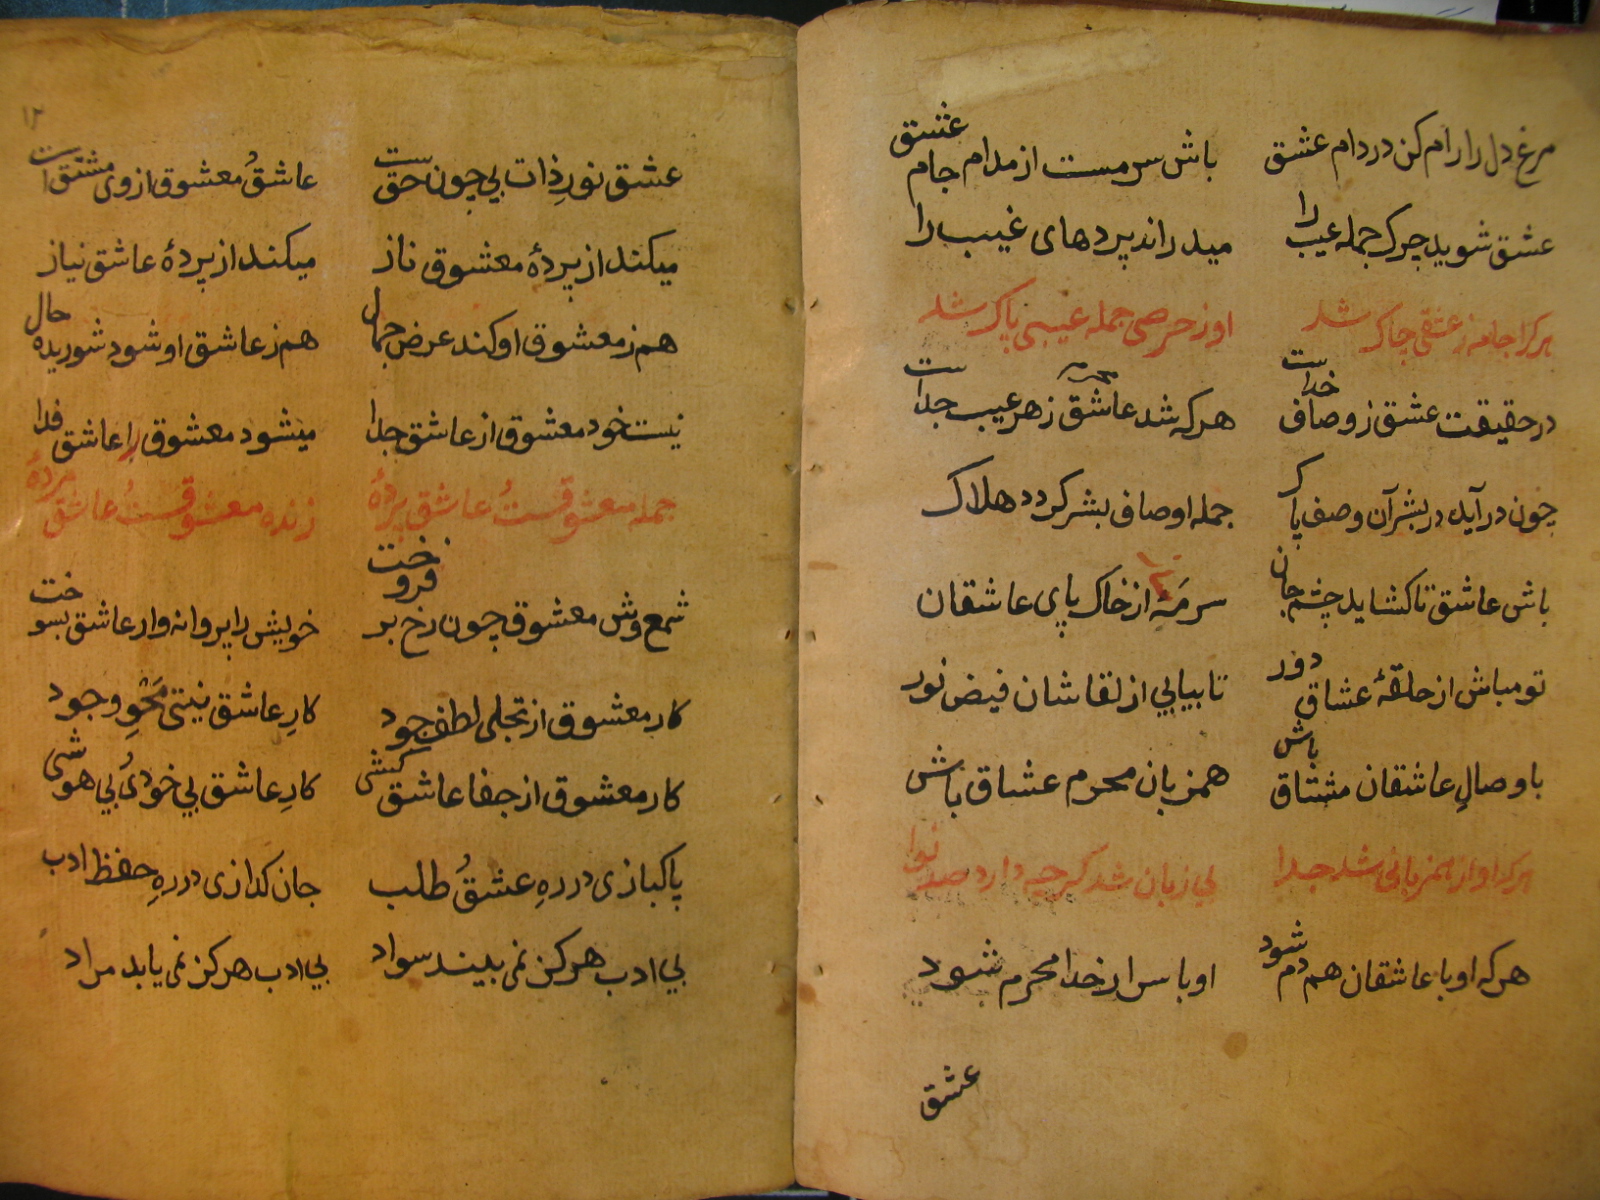 مرغ دل را رام کن در دام عشق باش سرمست از مدام جام عشق
عشق شوید چرک جمله عیب را میدراند پردهای غیب را
هرکرا جامه ز عشقی چاک شد او ز حرص و جمله عیبی پاک شد
در حقیقت عشق ز وصاف خداست هرکه شد عاشق زهر عیب جداست
چون در آید در بشر آن وصف پاک جمله اوصاف بشر کردد هلاک
باش عاشق تا کشاید چشم جان سرمهٔ از خاک پای عاشقان
تو مباش از حلقهٔ عشاق دور تا بیابی از لقاشان فیض نور
با وصالِ عاشقان مشتاق باش همزبان محرم عشاق باش
هرکه او از همزبانی شد جدا بی زبان شد کرچه دارد صد نوا
هرکه او با عاشقان هم دم شود او باسرار خدا محرم شود
عشق
۱۲
عشق نور ذات بی چون حق ست عاشقُ معشوق از وی مشتق است
میکند از پردهٔ معشوق ناز میکند از پردهٔ عاشق نیاز
هم ز معشوق او کند عرض جمال هم ز عاشق او شود شوریده حال
نیست خود معشوق از عاشق جدا میشود معشوق را عاشق فدا
جمله معشوقستُ عاشق پردهٔ زنده معشوقستُ عاشق مردهٔ
شمع وش معشوق چون رخ بر فروخت خویش را پروانه وار عاشق بسوخت
کار معشوق از تجلی لطف جود کارِ عاشق نیتی محوِ وجود
کار معشوق از جفا عاشق کشی کارِ عاشق بی خودیُ بی هوشی
پاکبازی در رهِ عشقُ طلب جان کدازی در رهِ حفظ ادب
بی ادب هرکز نمی بیند سواد بی ادب هرکز نمی یابد مراد